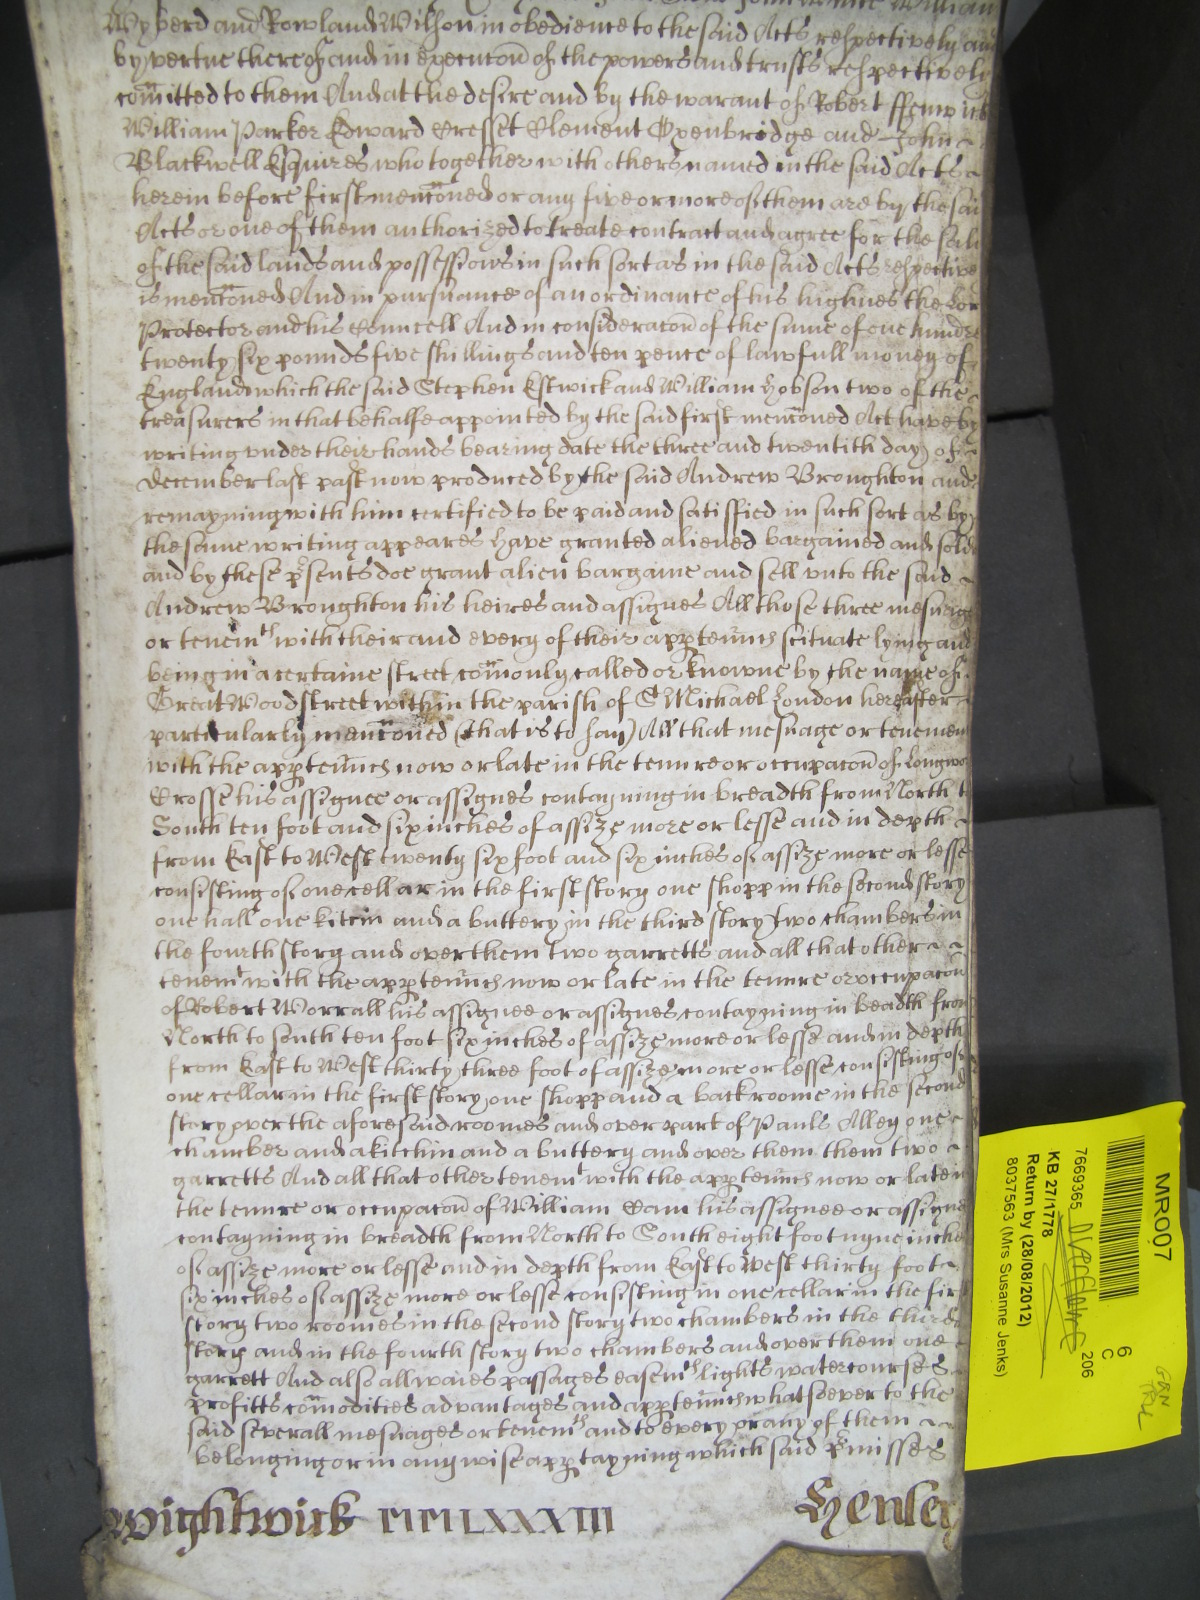 Wyberd and Rowland Wilson in obedience to the said Acts respectively and
by vertue thereof and in execucoñ of the powers and trusts respectively
com̃itted to them And at the desire and by the warant of Robert ffenwick
William Parker Edward Cresset Clement Oxenbridge and John
Blackwell Esquires who together with others named in the said Acts
herein before first menc̃oned or any five or more of them are by the said
Acts or one of them authorized to treate contract and agree for the sale
of the said lands and possessions in such sort as in the said Acts respective
is menc̃oned And in pursuance of an ordinance of his highnes the Lor
Protector and his Councell And in consideracoñ of the sume of one hundre
twenty six pounds five shillings and ten pence of lawfull money of
England which the said Stephen Estwick and William Hobson two of the
treasurers in that behalfe appointed by the said first menc̃oned Act have by
writing under their hands bearing date the three and twentith day of
December last past now produced by the said Andrew Broughton and
remayning with him certified to be paid and satisffied in such sort as by
the same writing appeares Have granted aliened bargained and sold
and by these p̃sents doe grant alien bargaine and sell vnto the said
Andrew Broughton his heires and assignes All those three mesuage
or tenemts with their and every of their app̱teñnces scituate lying and
being in a certaine street com̃only called or knowne by the name of
Great Woodstreet within the parish of St Michael London hereafter
particularly menc̃oned (that is to say) All that mesuage or tenemen
with the app̱teñnces now or late in the tenure or occupacoñ of Longwo
Crosse his assignee or assignes contayning in breadth from North t
South ten foot and six inches of assize more or lesse and in depth
from East to West twenty six foot and six inches of assize more or lesse
consisting of one cellar in the first story one shopp in the second story
one hall one kitcin and a buttery in the third story two chambers in
the fourth story and over them two garretts and all that other
tenemt with the app̱teñnces now or late in the tenure or occupacoñ
of Robert Worrall his assignee or assignes contayning in beadth from
North to South ten foot six inches of assize more or lesse and in depth
from East to West thirty three foot of assize more or lesse consisting of
one cellar in the first story one shopp and a back roome in the second
story over the aforesaid roomes and over part of Pauls Alley one
chamber and a kitchin and a buttery and over them them two
garretts And all that other tenemt with the app̱teñnces now or late in
the tenure or occupacoñ of William Cam his assignee or assigne
contayning in breadth from North to South eight foot nyne inche
of assize more or lesse and in depth from East to West thirty foot
six inches of assize more or lesse consisting in one cellar in the firs
story two roomes in the second story two chambers in the third
story and in the fourth story two chambers and over them one
garrett And also all waies passages easemts lights watercourses
profitts com̃odities advantages and app̱teñnces whatsoever to the
said severall mesuages or tenemts and to every or any of them
belonging or in any wise app̱tayning which said p̃misses
Wightwick MMLXXXIII Hensley
MR007
6
C
7669365 206
KB 27/1778
Return by (28/08/2012)
8037563 (Mrs Susanne Jenks)